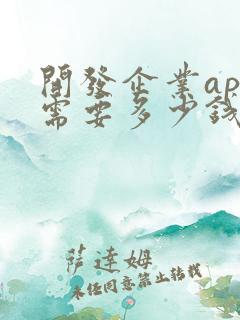 開發企業ap
需要多少錢
薩達姆
未經同意禁止轉載